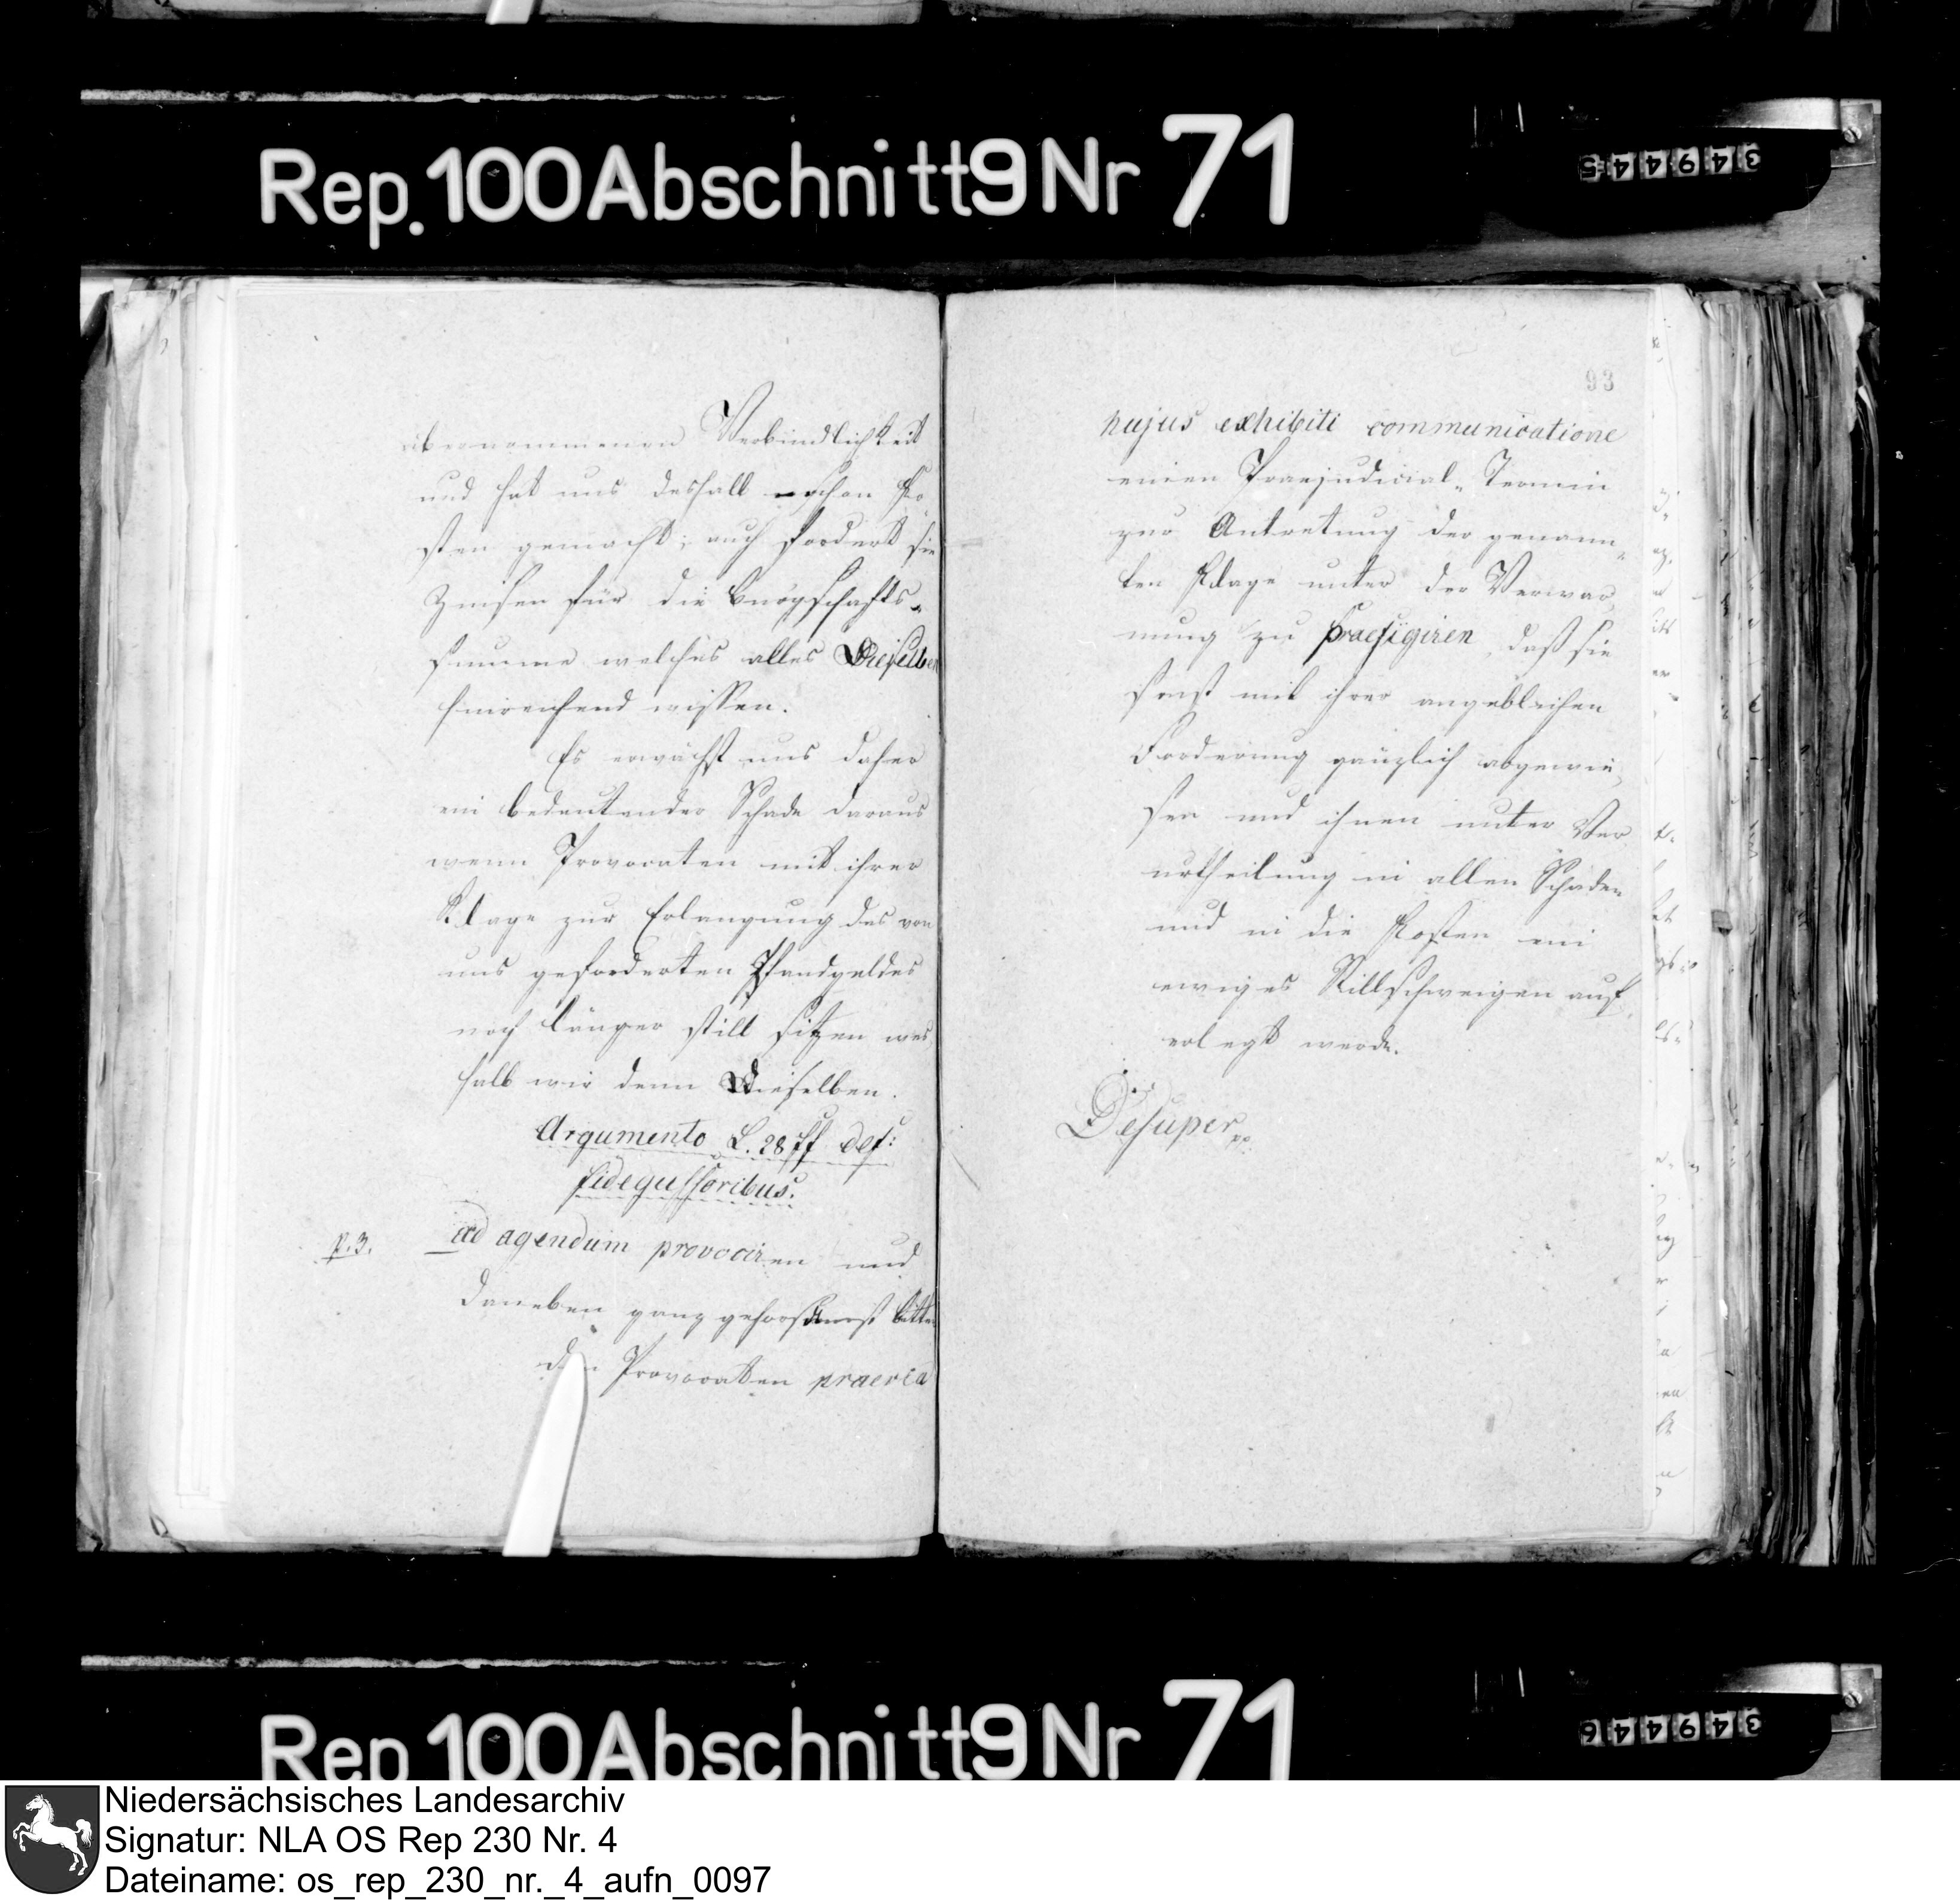 Rep. 100 Abschnitt 9 Nr 71
349445
übernommenen Verbindlichkeit
und hat uns deshalb schon Ko
sten gemacht; auch fordert sie
Zinsen für die Bürgschafts-
summe welches alles Dieselben
hinreichend wissen.
Es erwächst uns daher
ein bedeutender Schade daraus
wenn Provocaten mit ihrer
Klage zur Erlangung des von
uns geforderten Pfandgeldes
noch länger still sitzen wes
halb wir denn Dieselben.
Argumento L. 28 ff de
fidegussoribus.
p. 3.
ad agendum provociren und
daneben ganz gehorsamst bitten
den Provocaten praevia
93
hujus exhibiti communicatione
einen Praejudicial-Termin
zur Antretung der genann-
ten Klage unter der Verwar
nung zu praefigiren, daß sie
sonst mit ihrer angeblichen
Forderung gänzlich abgewie
sen und ihnen unter Ver
urtheilung in allen Schaden
und in die Kosten ein
ewiges Stillschweigen auf
erlegt werde.
Desuper
Rep 100 Abschnitt 9 Nr 71
349446
Niedersächsisches Landesarchiv
Signatur: NLA OS Rep 230 Nr. 4
Dateiname: os_rep_230_nr._4_aufn_0097